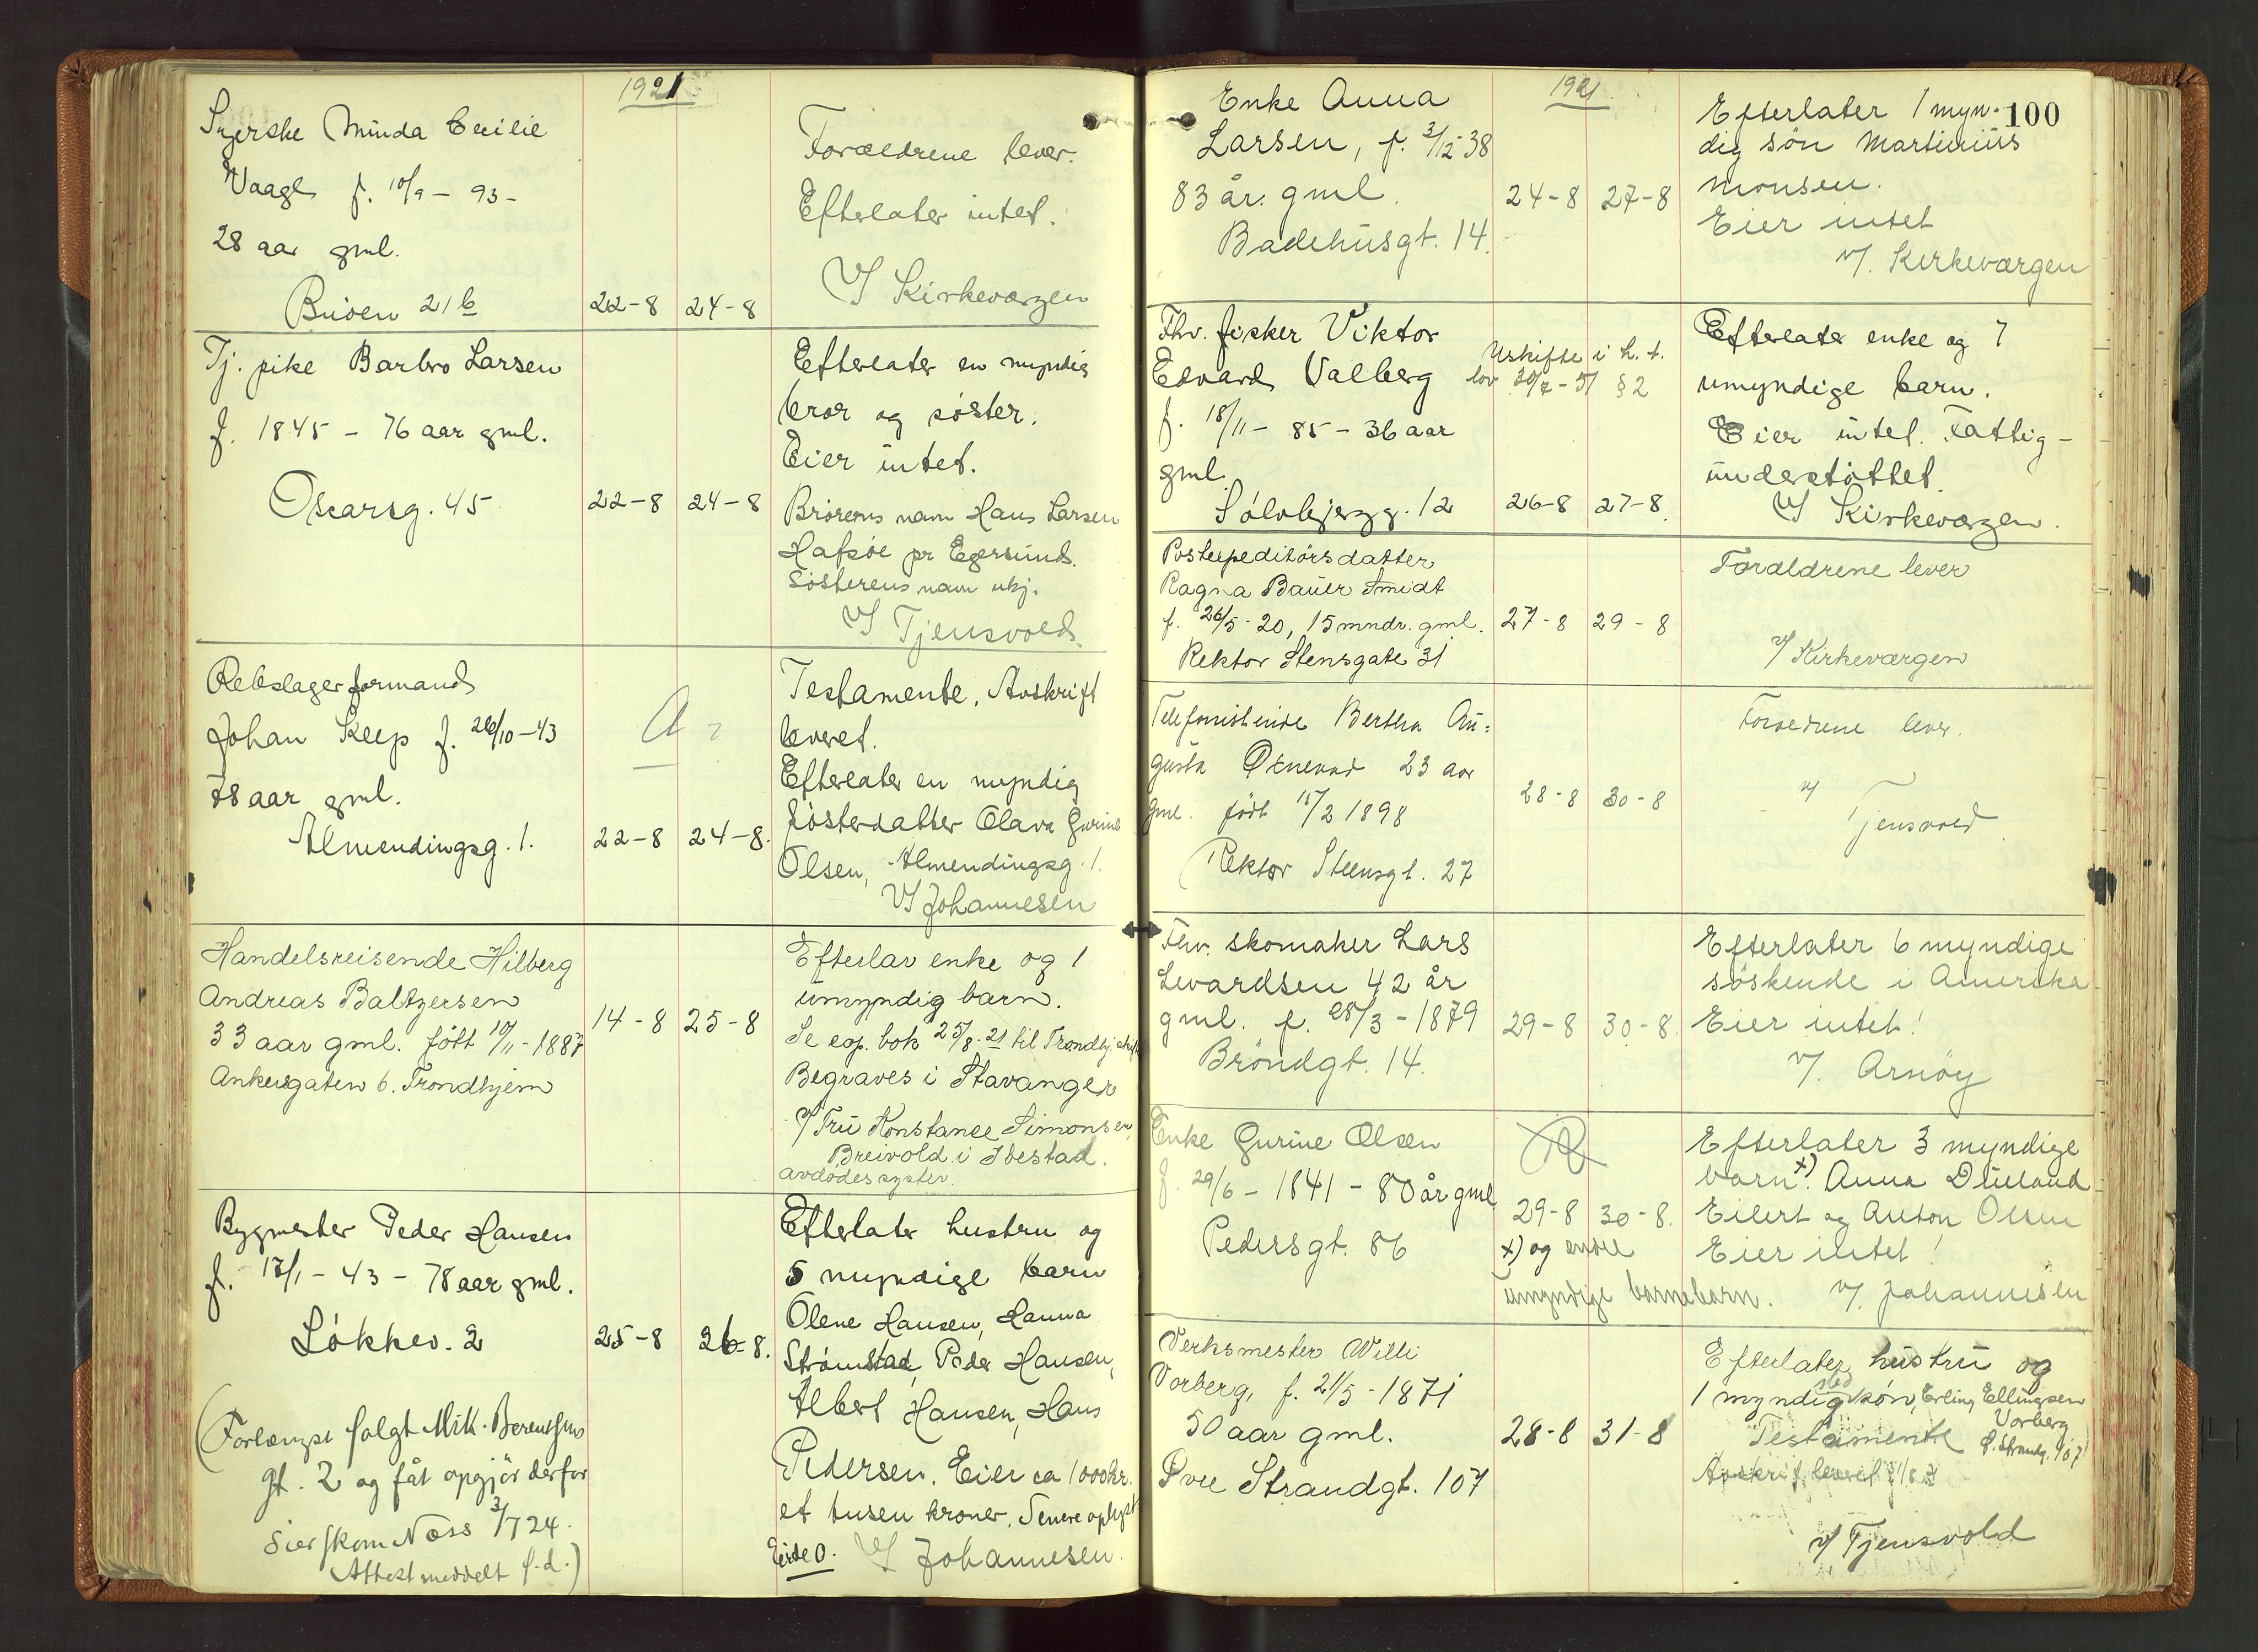 1921
Syerske Minda Cecilie
Vaage f. 10/9 – 93 –
28 aar gml.
Buöen 21 b
22–8 24–8
Forældrene lever.
Efterlater intet.
V/ Kirkeværgen
Tj. pike Barbro Larsen
f. 1845 – 76 aar gml.
Oscarsg. 45
22–8 24–8
Efterlater en myndig
bror og søster.
Eier intet.
Brorens navn Hans Larsen
Hafsøe pr Egersund.
Søsterens navn ukj.
V/ Tjensvold
Rebslagerformand
Johan Keep f. 26/10–43
78 aar gml.
Almendingsg. 1.
A
22–8 24–8.
Testamente. Avskrift
levert.
Efterlater en myndig
søsterdatter Olava Gurine
Olsen, Almendingsg. 1.
V/ Johannesen
Handelsreisende Hilberg
Andreas Baltzersen
33 aar gml. født 10/11–1887
Ankersgaten 6. Trondhjem
14–8 25–8
Efterlar enke og 1
umyndig barn.
Se cop. bok 25/8–21 til Trondhj. skifte
Begraves i Stavanger
V/ Fru Konstance Simonsen,
Breivold i Ibestad.
avdødes syster.
Bygmester Peder Hansen
f. 13/1 – 43 – 78 aar gml.
Løkkev. 2
25–8 26–8.
(Forlængst solgt Mik. Berentsens
gt. 2 og fåt opgjör derfor
sier skom Næss 3/7 24.
Attest meddelt s.d.)
Efterlater hustru og
5 myndige barn
Olene Hansen, Hanna
Strømstad, Peder Hansen,
Albert Hansen, Hans
Pedersen. Eier ca 1000 kr.
et tusen kroner. Senere oplyst
Eiede 0. V/ Johannesen.
1921
100
Enke Anna
Larsen, f. 3/12–38
83 år. gml.
Badehusgt. 14.
24–8 27–8
Efterlater 1 myn-
dig sön Martinius
Monsen.
Eier intet
V/. Kirkeværgen
Fhv. fisker Viktor
Edvard Valberg
f. 18/11 – 85 – 36 aar
gml.
Sølvbjergg. 12
Uskifte i h. t.
lov 30/7–51 § 2
26–8 27–8.
Efterlater enke og 7
umyndige barn.
Eier intet. Fattig-
understøttet.
V/ Kirkeværgen.
Postexpeditörsdatter
Ragna Bauer Smidt
f. 26/5–20, 15 mndr. gml.
Rektor Stensgate 31
27–8 29–8
Forældrene lever
V/ Kirkeværgen
Telefonistinde Bertha Au=
gusta Ognevad 23 aar
gml. født 15/2 1898
Rektor Steensgt. 27
28–8 30–8
Foreldrene lever.
V/ Tjensvold
Fhv. skomaker Lars
Levardsen 42 år
gml. f. 28/3–1879
Bröndgt. 14.
29–8 30–8.
Efterlater 6 myndige
söskende i Amerika.
Eier intet!
V/. Arnöy
Enke Gurine Olsen
f. 29/6 – 1841 – 80 år gml
Pedersgt. 86
29–8 30–8.
x) og endel
umyndige barnebarn.
Efterlater 3 myndige
barn x). Anna Dueland
Eilert og Anton Olsen
Eier intet!
V/. Johannesen
Verksmester Willi
Vorberg, f. 21/5–1871
50 aar gml.
Øvre Strandgt. 107
28–8 31–8
Efterlater hustru og
1 myndig stedsön, Erling Ellingsen
Vorberg
Ø. Strandg. 107
Testamente
Avskrift levert
V/ Tjensvold